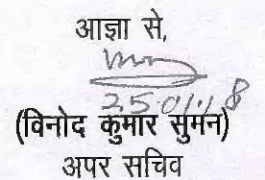 आज्ञा से,
25/01/18
(विनोद कुमार सुमन)
अपर सचिव